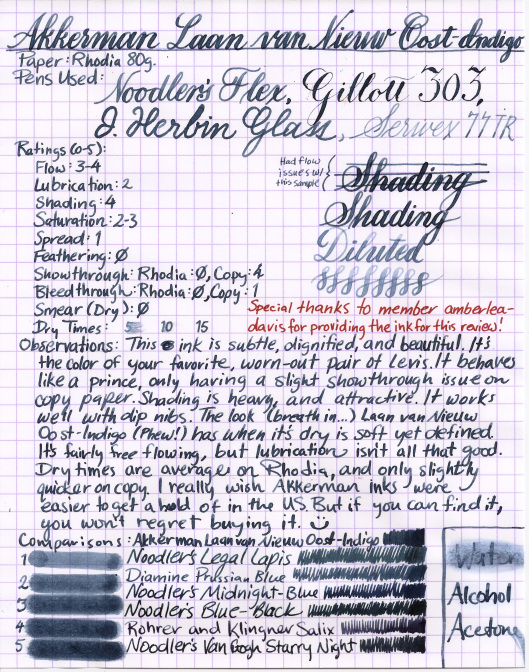 Akkerman Laan van Nieuw Oost-Indigo
Paper: Rhodia 80g.
Pens Used:
Noodler's Flex, Gillott 303,
J. Herbin Glass, Serwex 77TR
Ratings (0-5):
Flow: 3-4
Lubrication: 2
Shading: 4
Saturation: 2-3
Spread: 1
Feathering: Ø
Showthrough: Rhodia: Ø, Copy: 4
Bleedthrough: Rhodia: Ø, Copy: 1
Smear (Dry): Ø
Dry Times: 5 10 15
Had flow
issues w/
this sample
Shading
Shading
Diluted
Special thanks to member amberlea-
davis for providing the ink for this review!
Observations: This ink is subtle, dignified, and beautiful. It's
the color of your favorite, worn-out pair of Levis. It behaves
like a prince, only having a slight showthrough issue on
copy paper. Shading is heavy, and attractive. It works
well with dip nibs. The look (breath in...) Laan van Nieuw
Oost-Indigo (Phew!) has when it's dry is soft yet defined.
It's fairly free flowing, but lubrication isn't all that good.
Dry times are average on Rhodia, and only slightly
quicker on copy. I really wish Akkerman inks were
easier to get a hold of in the US. But if you can find it,
you won't regret buying it. :)
Comparisons: Akkerman Laan van Nieuw Oost-Indigo
1 Noodler's Legal Lapis
2 Diamine Prussian Blue
3 Noodler's Midnight-Blue
Noodler's Blue-Black
4 Rohrer and Klingner Salix
5 Noodler's Van Gogh Starry Night
Water
Alcohol
Acetone